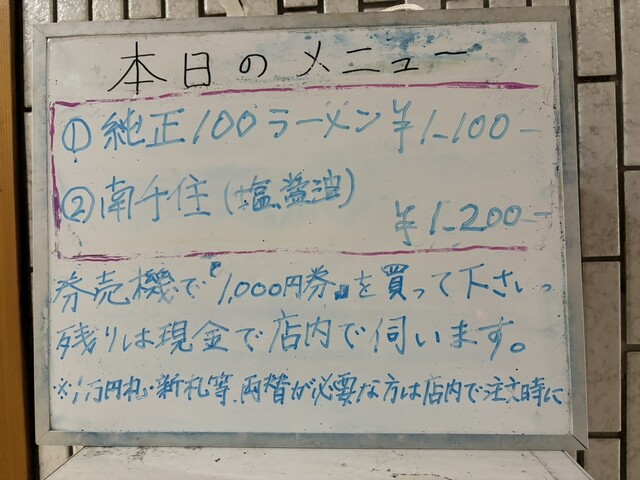 本日のメニュー
①純正100ラーメン ¥1-100-
②南千住(塩、醤油)
¥1-200-
券売機で『1,000円券』を買って下さい。
残りは現金で店内で伺います。
※1万円札・新札等、両替が必要な方は店内で注文時に